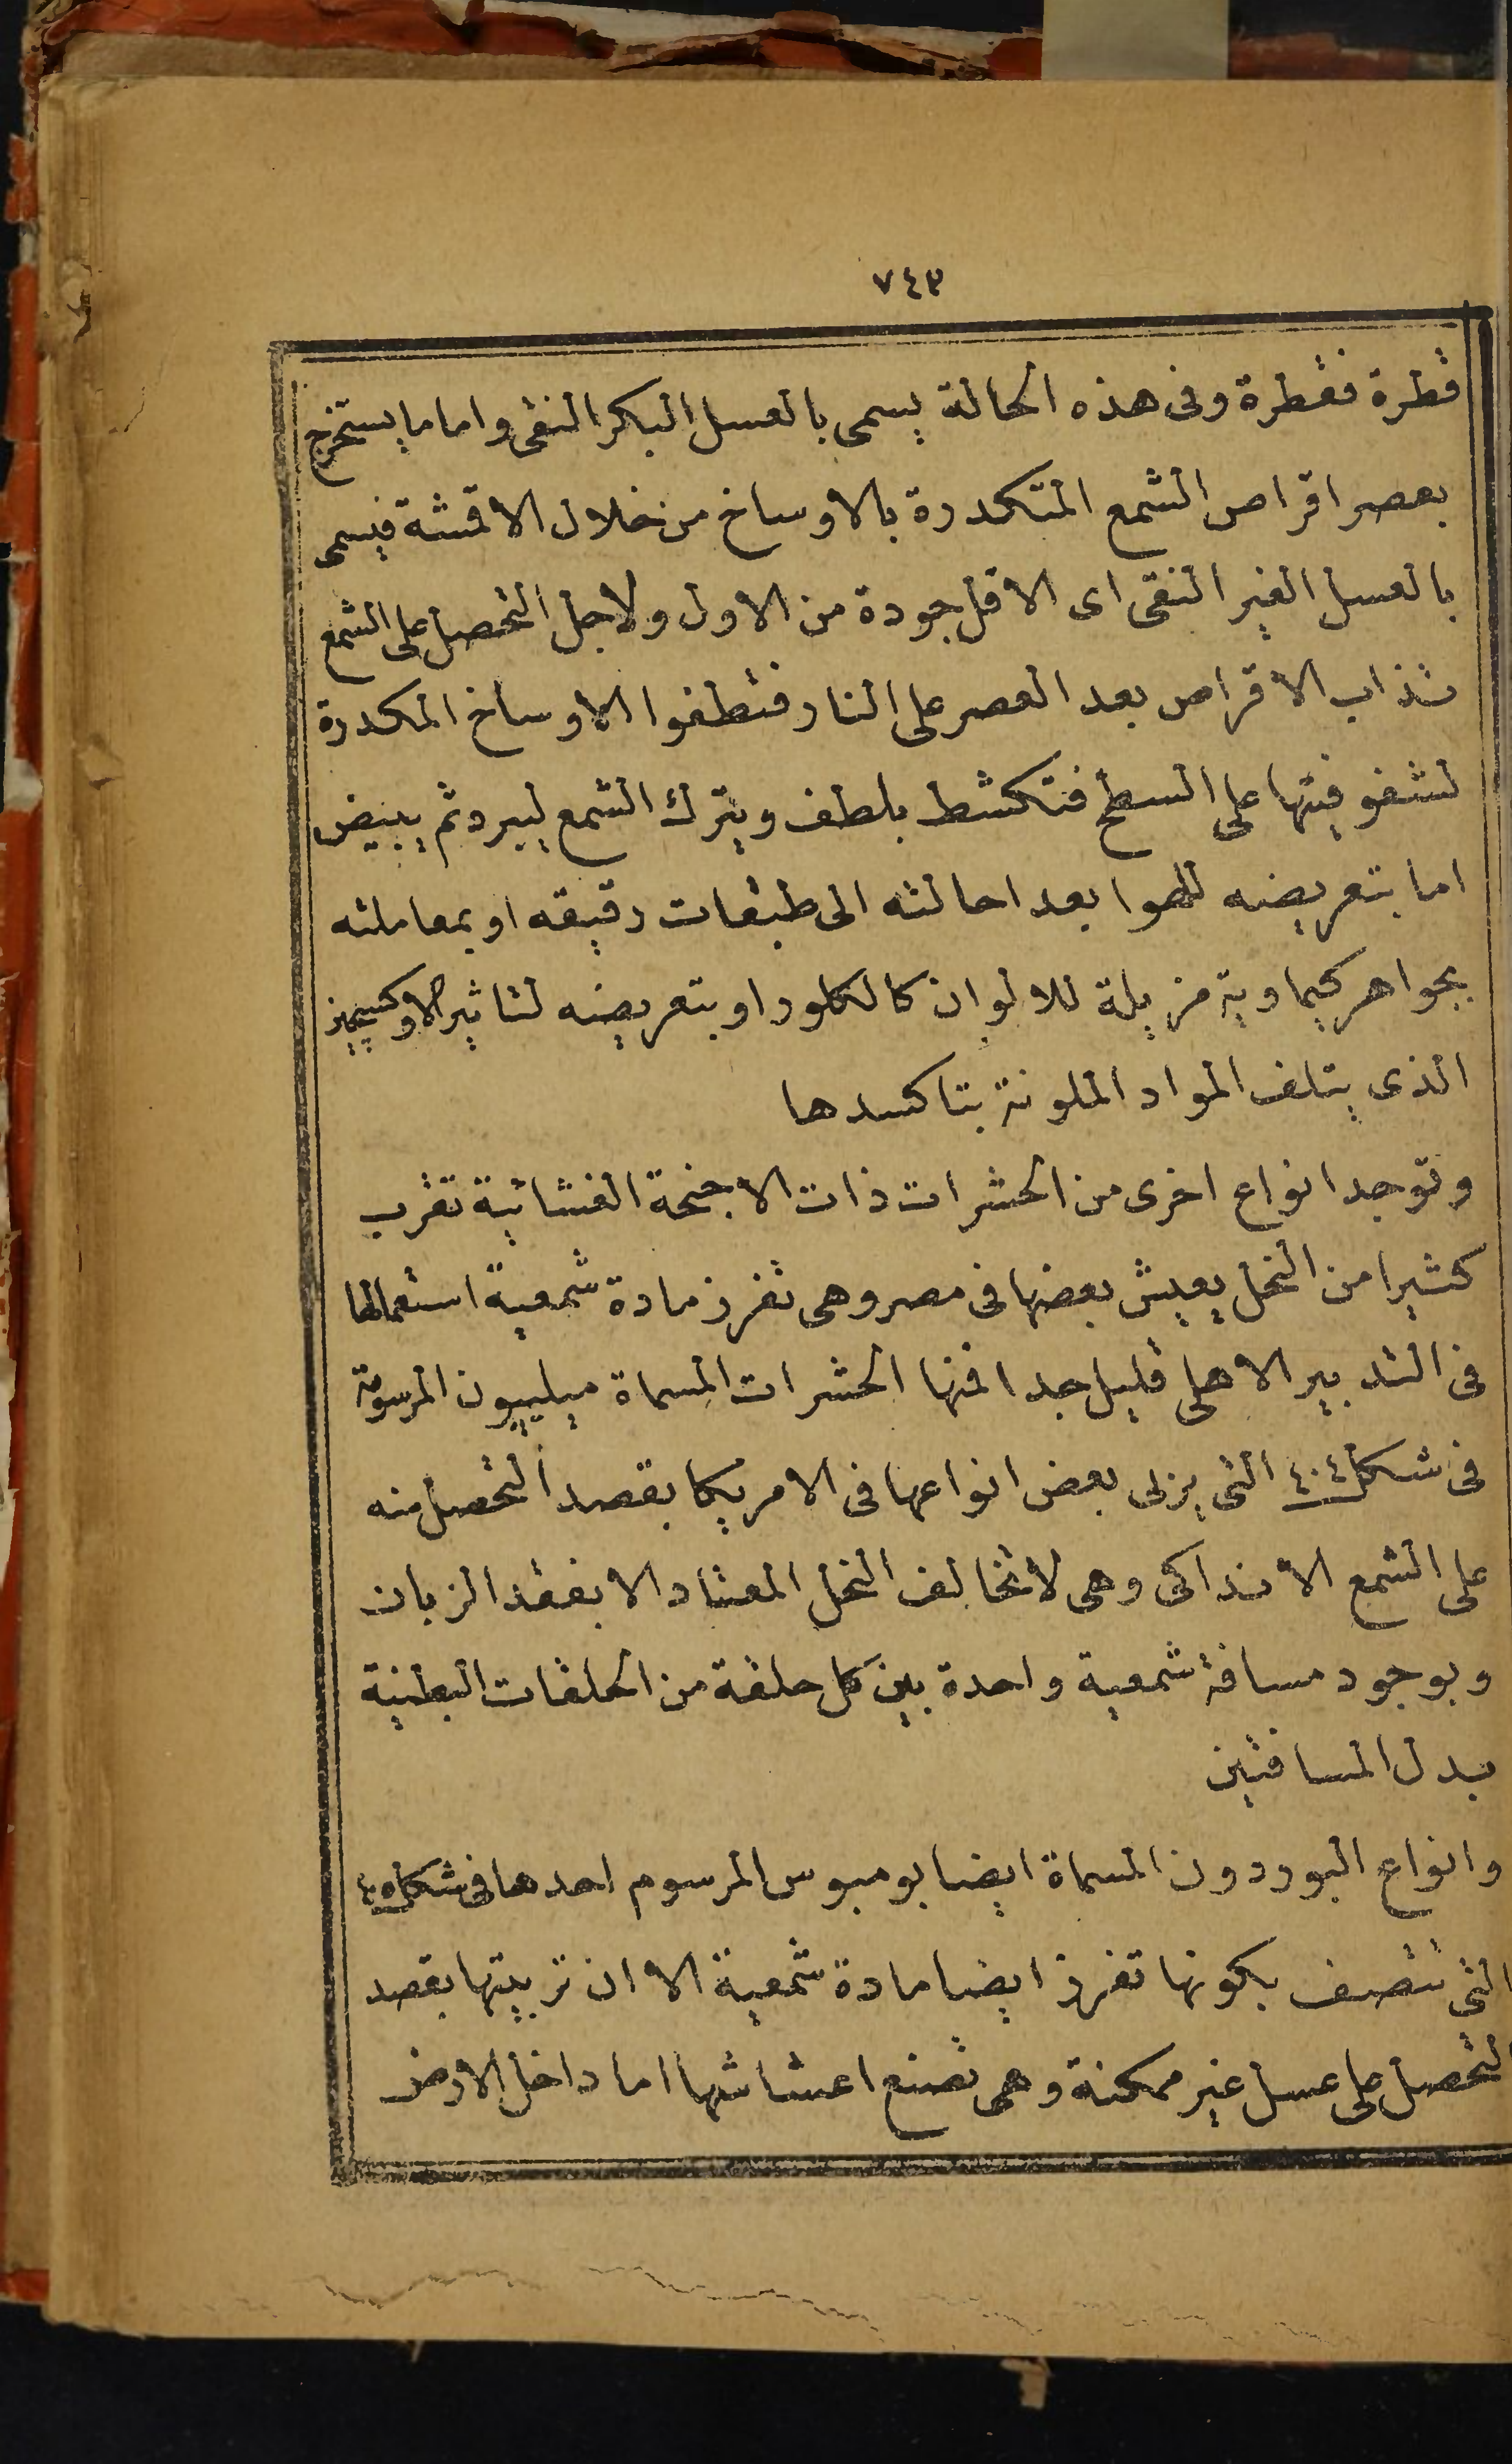 ٧٤٣
قطرة فقطرة وفى هذه الحالة يسمى بالعسل البكر النقى واما ما يستخرج
بعصر اقراص الشمع المتكدرة بالاوساخ من خلال الاقمشة فيسمى
بالعسل الغير النقى اى الاقل جودة من الاول ولاجل التحصل على الشمع
تذاب الاقراص بعد العصر على النار فتطفوا الاوساخ المكدرة
لشفوفيتها على السطح فتكشط بلطف ويترك الشمع ليبرد ثم يبيض
اما بتعريضه للهوا بعد احالته الى طبقات رقيقه او بمعاملته
بجواهر كيماوية مزيلة للالوان كالكلور او بتعريضه لتاثير الاوكسيجين
الذى يتلف المواد الملونة بتاكسدها
وتوجد انواع اخرى من الحشرات ذات الاجنحة الغشائية تقرب
كثيرا من النحل يعيش بعضها فى مصر وهى تفرز مادة شمعية استعمالها
فى التدبير الاهلى قليل جدا فمنها الحشرات المسماة ميليبون المرسومة
فى شكل ٤٠٤ التى يربى بعض انواعها فى الامريكا بقصد التحصل منه
على الشمع الانداكى وهى لاتخالف النحل المعتاد الا بفقد الزبان
وبوجود مسافة شمعية واحدة بين كل حلقة من الحلقات البطنية
بدل المسافتين
وانواع البوردون المسماة ايضا بومبوس المرسوم احدها فى شكل ٤٠٥
التى تتصف بكونها تفرز ايضا مادة شمعية الا ان تربيتها بقصد
التحصل على عسل غير ممكنة وهى تصنع اعشاشها اما داخل الارض